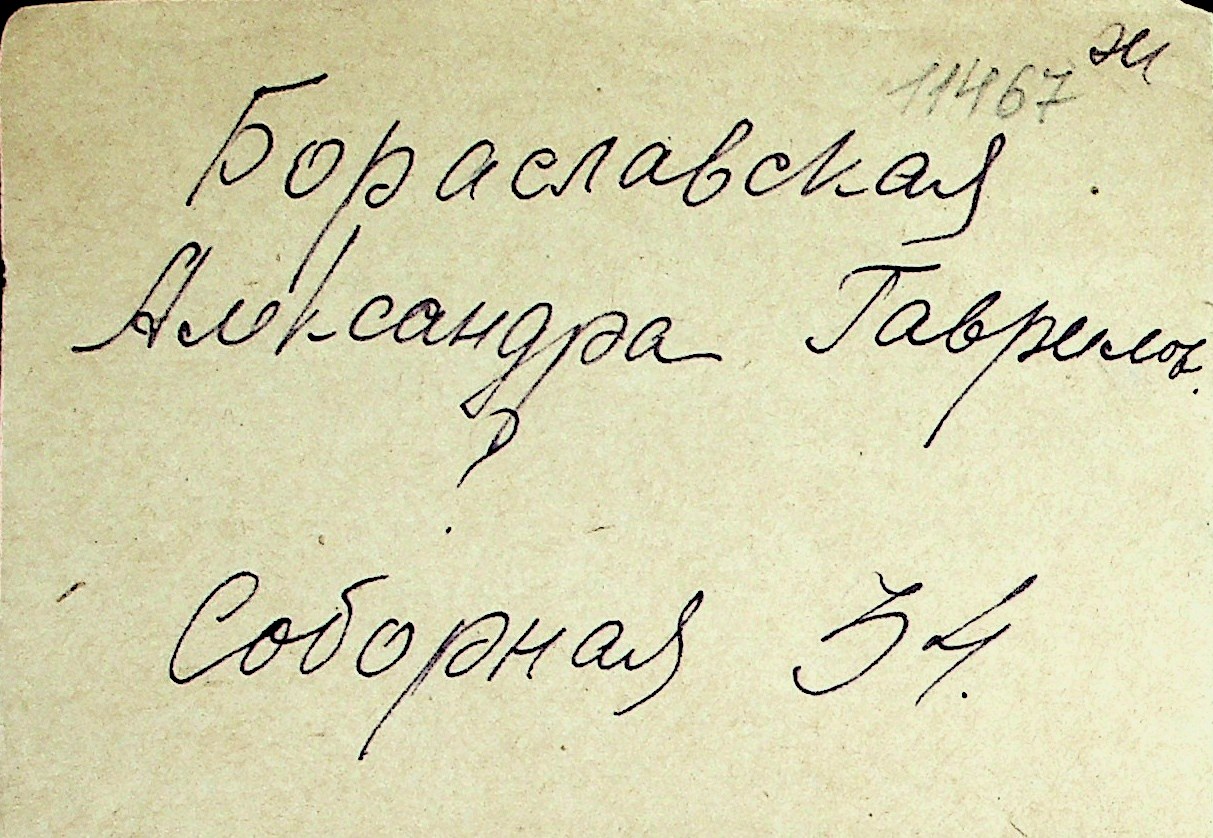 11467 Ж
Бораславская
Александра Гаврилов.
Соборная 34.